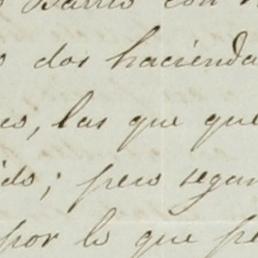 Barrio con
dos hacienda
las que que
ido; pero segun
por lo que pe